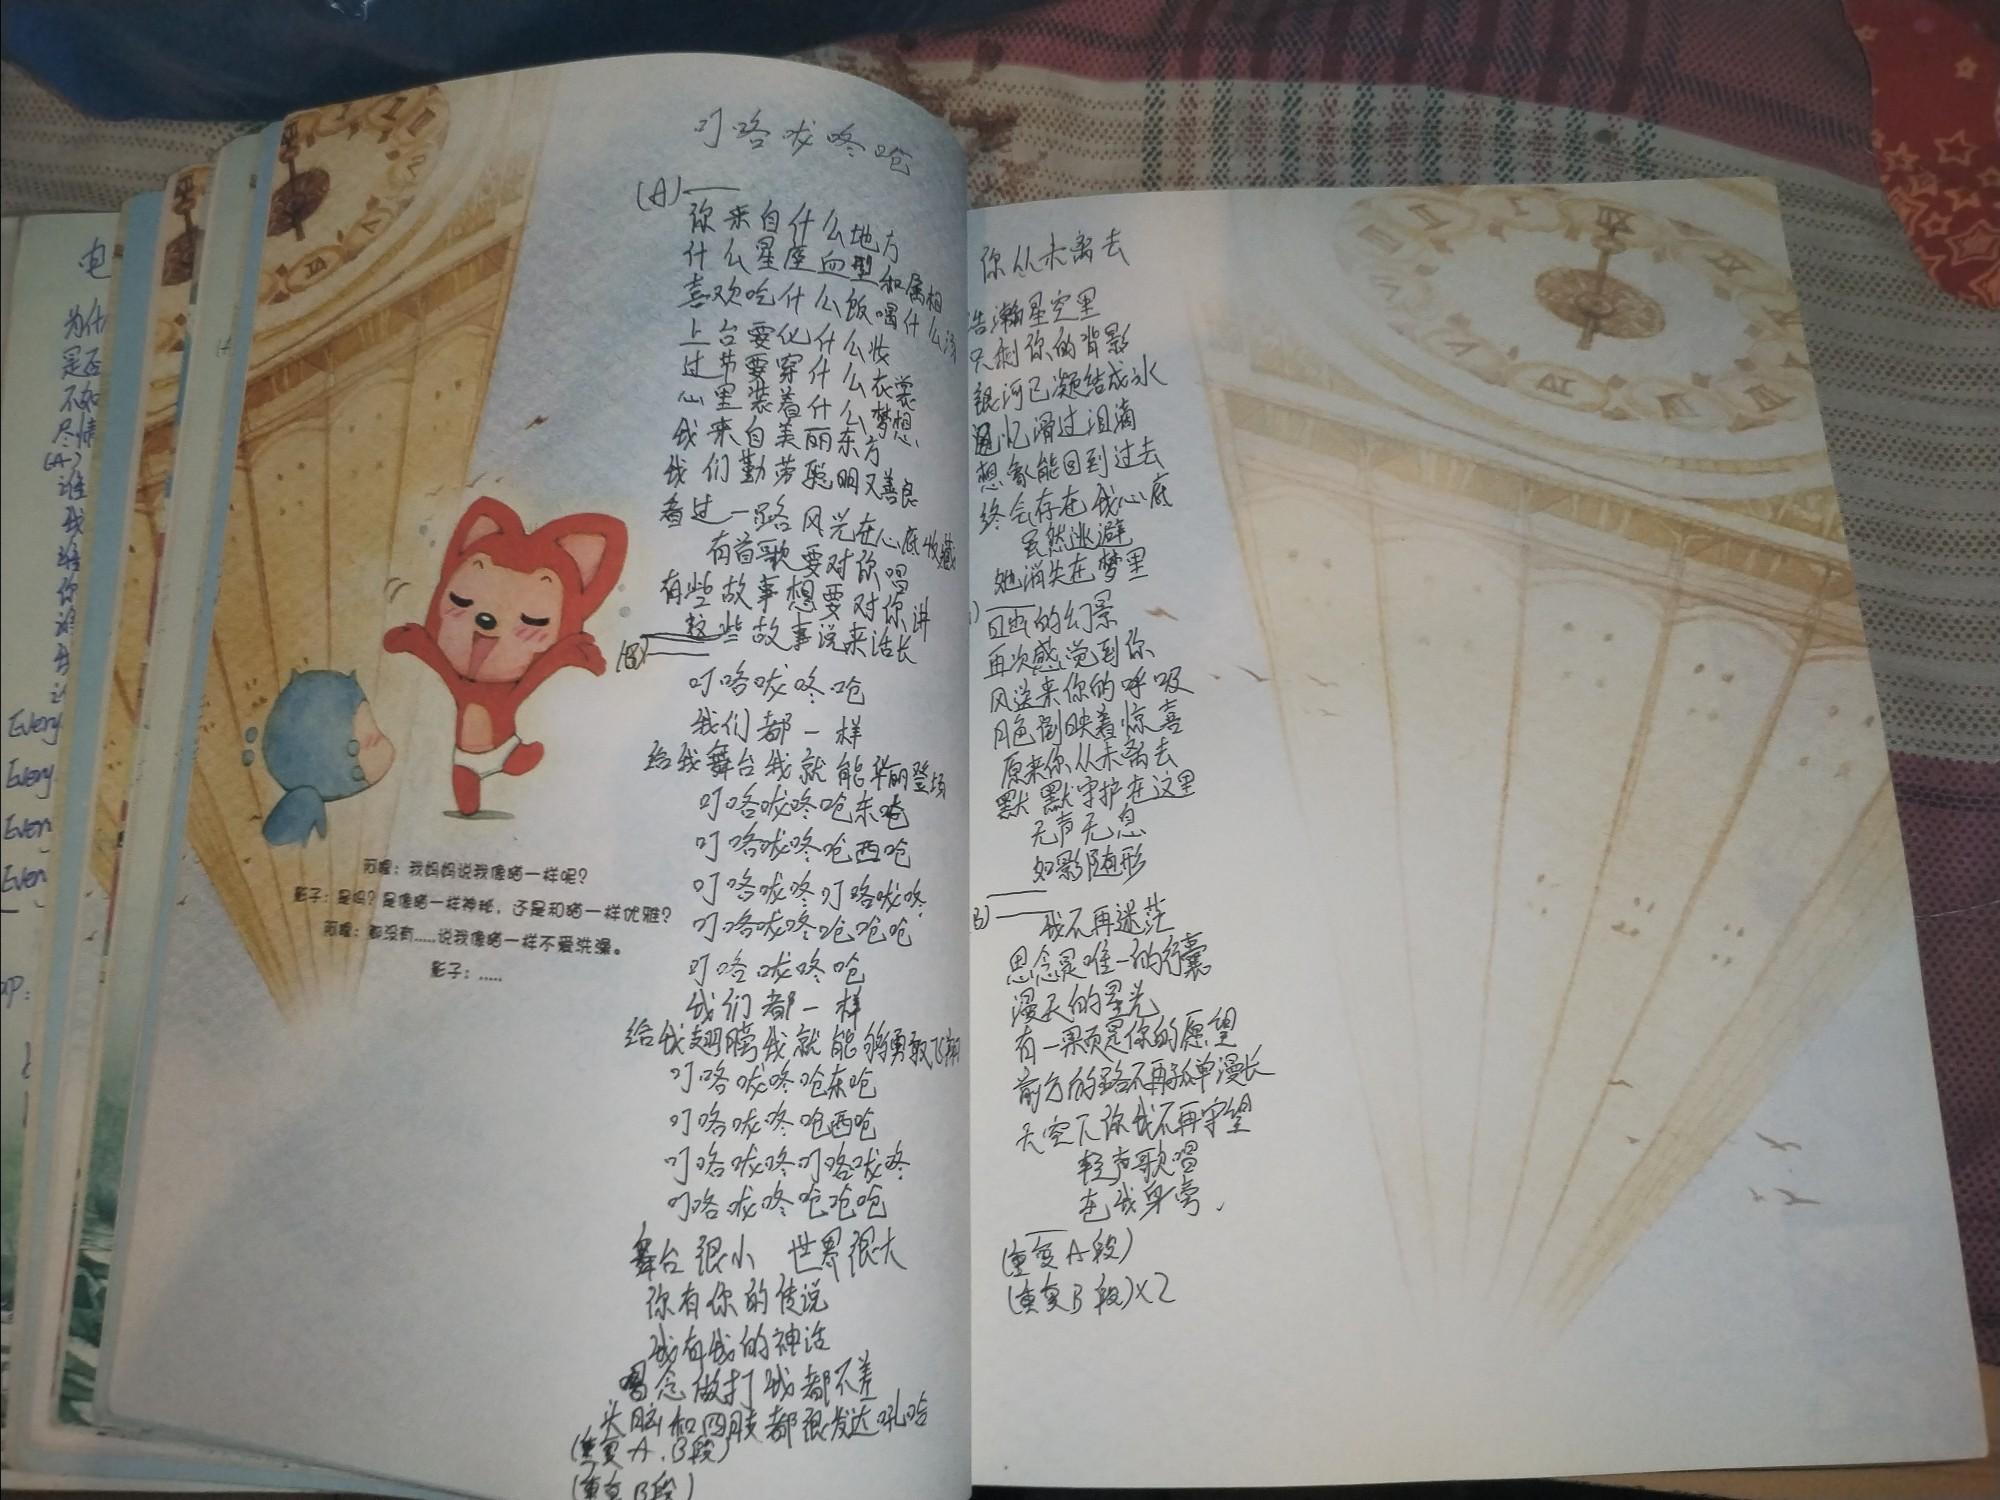 电
为什
是否
不如
尽情
(A)
谁
我
谁
你
谁
Every
Every
Even
Even
叮咯咙咚呛
(A)
你来自什么地方
什么星座血型和属相
喜欢吃什么饭喝什么汤
上台要化什么妆
过节要穿什么衣裳
心里装着什么梦想
我来自美丽东方
我们勤劳聪明又善良
看过一路风光在心底收藏
有首歌要对你唱
有些故事想要对你讲
这些故事说来话长
(B)
叮咯咙咚呛
我们都一样
给我舞台我就能华丽登场
叮咯咙咚呛东呛
叮咯咙咚呛西呛
叮咯咙咚叮咯咙咚
叮咯咙咚呛呛呛
叮咯咙咚呛
我们都一样
给我翅膀我就能够勇敢飞翔
叮咯咙咚呛东呛
叮咯咙咚呛西呛
叮咯咙咚叮咯咙咚
叮咯咙咚呛呛呛
舞台很小 世界很大
你有你的传说
我有我的神话
唱念做打我都不差
头脑和四肢都很发达吼哈
(重复A.B段)
(重复B段)
阿狸：我妈妈说我像猫一样呢？
影子：是吗？是像猫一样神秘，还是和猫一样优雅？
阿狸：都没有.....说我像猫一样不爱洗澡。
影子：.....
你从未离去
浩瀚星空里
只剩你的背影
银河已凝结成冰
回忆滑过泪滴
想象能回到过去
终会存在我心底
虽然逃避
她消失在梦里
的幻景
再次感觉到你
风送来你的呼吸
月色倒映着惊喜
原来你从未离去
默默守护在这里
无声无息
如影随形
B)
我不再迷茫
思念是唯一的行囊
漫天的星光
有一颗是你的愿望
前方的路不再孤单漫长
天空下你我不再守望
轻声歌唱
在我身旁.
(重复A段)
(重复B段)×2